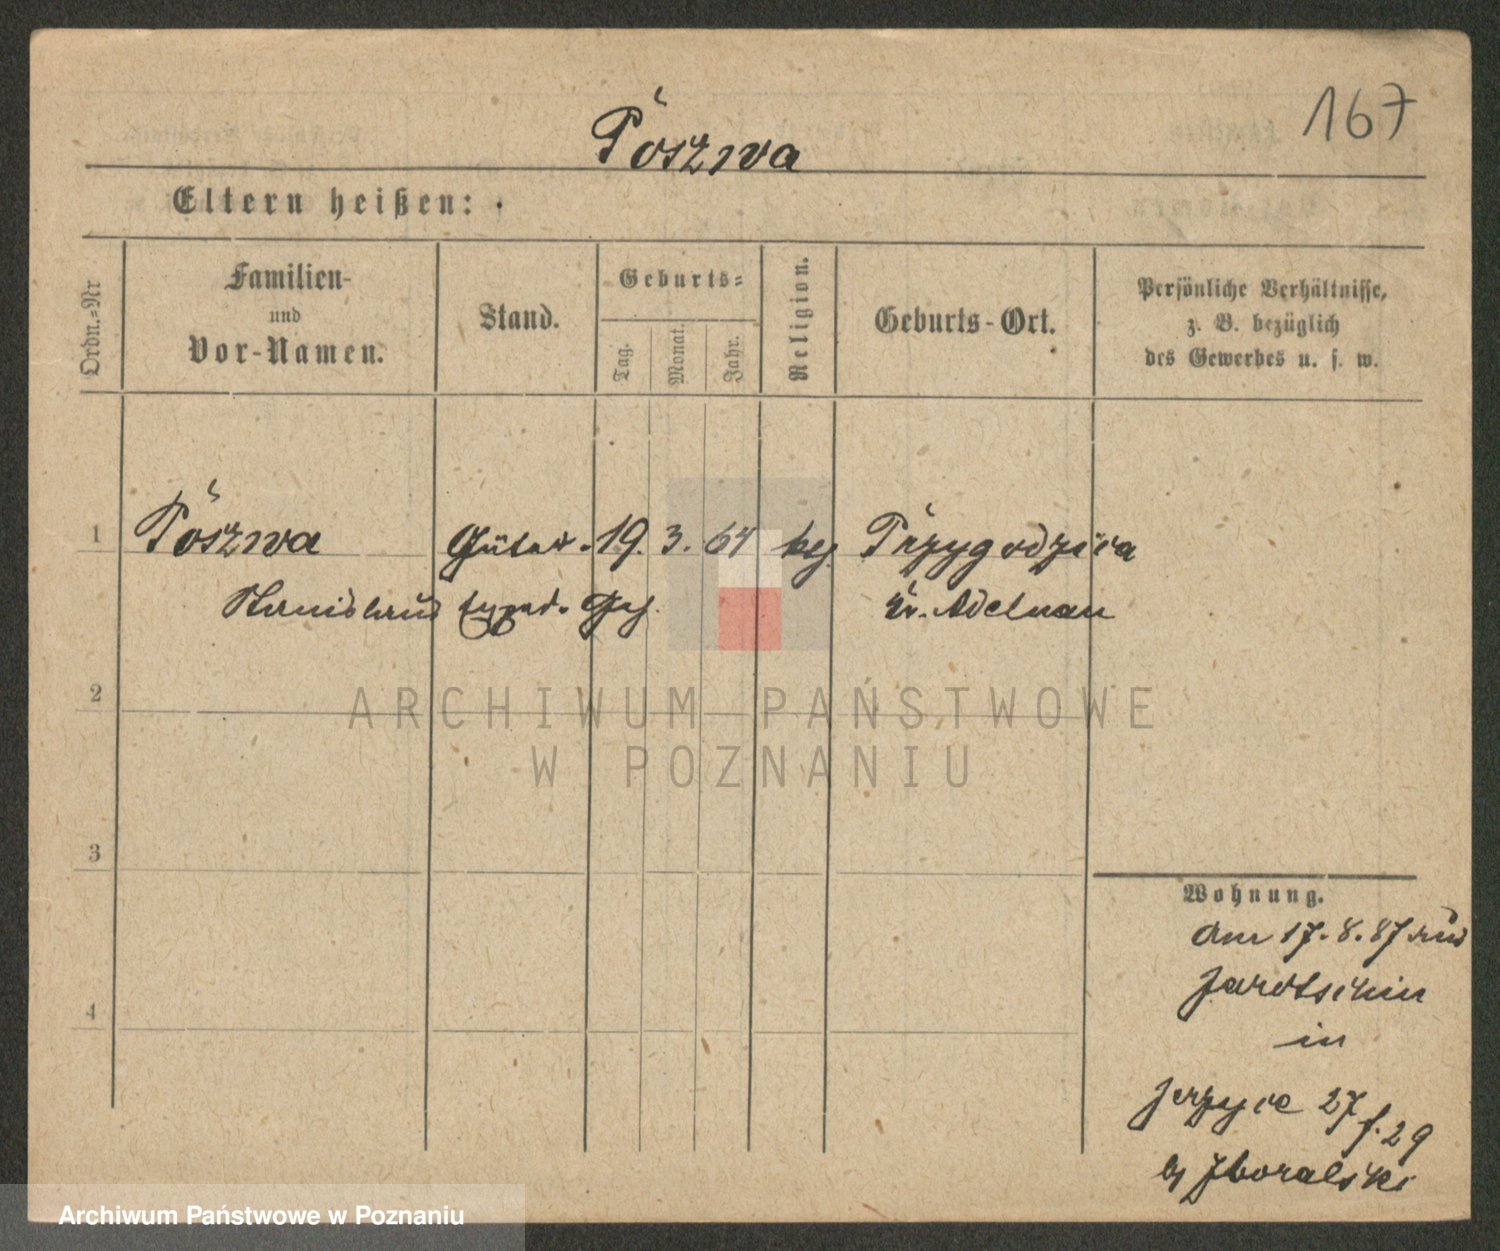 167
Pószwa
Eltern heißen:
Ordn.-Nr
Familien-
und
Vor-Namen.
Stand.
Geburts-
Tag.
Monat.
Jahr.
Religion.
Geburts-Ort.
Persönliche Verhältnisse,
z. B. bezüglich
des Gewerbes u. s. w.
1 Pószwa Güter- 19. 3. 64 Przygodzica
Stanislaus exped. Geh. Kr. Adelnau
2
ARCHIWUM PAŃSTWOWE
W POZNANIU
3
Wohnung.
am 17.8.87 aus
Jarotschin
4
in
Jerzyce 27 f. 29
b/ Zboralski
Archiwum Państwowe w Poznaniu